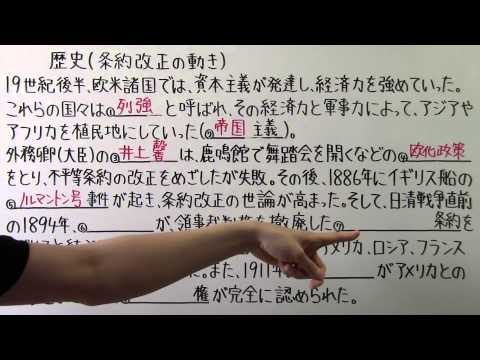 歴史(条約改正の動き)
19世紀後半、欧米諸国では、資本主義が発達し、経済力を強めていった。
これらの国々は①列強と呼ばれ、その経済力と軍事力によって、アジアや
アフリカを植民地にしていった(②帝国主義)。
外務卿(大臣)の③井上馨は、鹿鳴館で舞踏会を開くなどの④欧化政策
をとり、不平等条約の改正をめざしたが失敗。その後、1886年にイギリス船の
⑤ノルマントン号事件が起き、条約改正の世論が高まった。そして、日清戦争直前
の1894年、⑥ が、領事裁判権を撤廃した⑦ 条約を
メリカ、ロシア、フランス
た。また、1911年 がアメリカとの
権が完全に認められた。